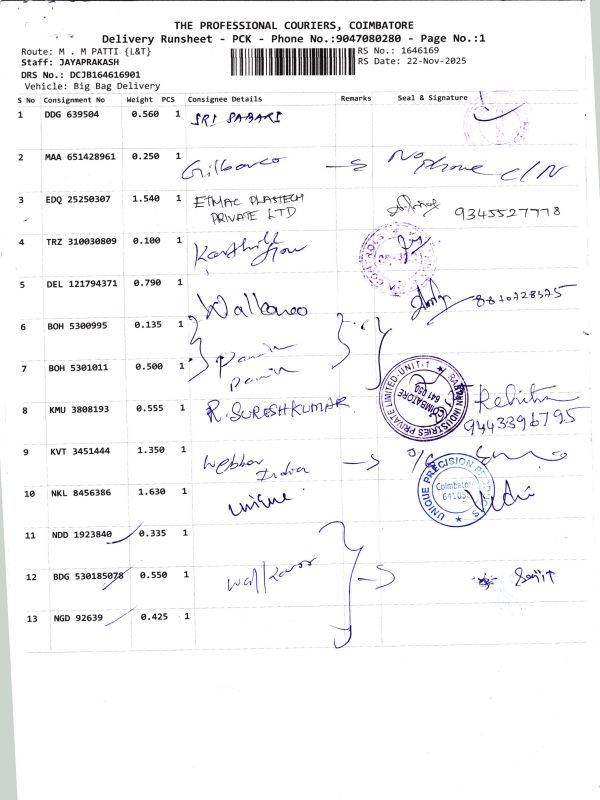 THE PROFESSIONAL COURIERS, COIMBATORE
Delivery Runsheet - PCK - Phone No.:9047080280 - Page No.:1
Route: M . M PATTI {L&T}
RS No.: 1646169
Staff: JAYAPRAKASH
RS Date: 22-Nov-2025
DRS No.: DCJB164616901
Vehicle: Big Bag Delivery
S No Consignment No Weight PCS Consignee Details Remarks Seal & Signature
1 DDG 639504 0.560 1 SRI SABARI
2 MAA 651428961 0.250 1 Gilbarco No phone C/N
3 EDQ 25250307 1.540 1 ETMAC PLASTECH PRIVATE LTD 9345527778
4 TRZ 310030809 0.100 1
5 DEL 121794371 0.790 1
6 BOH 5300995 0.135 1
7 BOH 5301011 0.500 1
8 KMU 3808193 0.555 1 R. SURESHKUMAR 9443396795
INDUSTRIES PRIVATE LIMITED-UNIT-1
COIMBATORE 641 050
9 KVT 3451444 1.350 1 India
10 NKL 8456386 1.630 1 unique
UNIQUE PRECISION
Coimbatore
11 NDD 1923840 0.335 1
12 BDG 530185078 0.550 1
13 NGD 92639 0.425 1